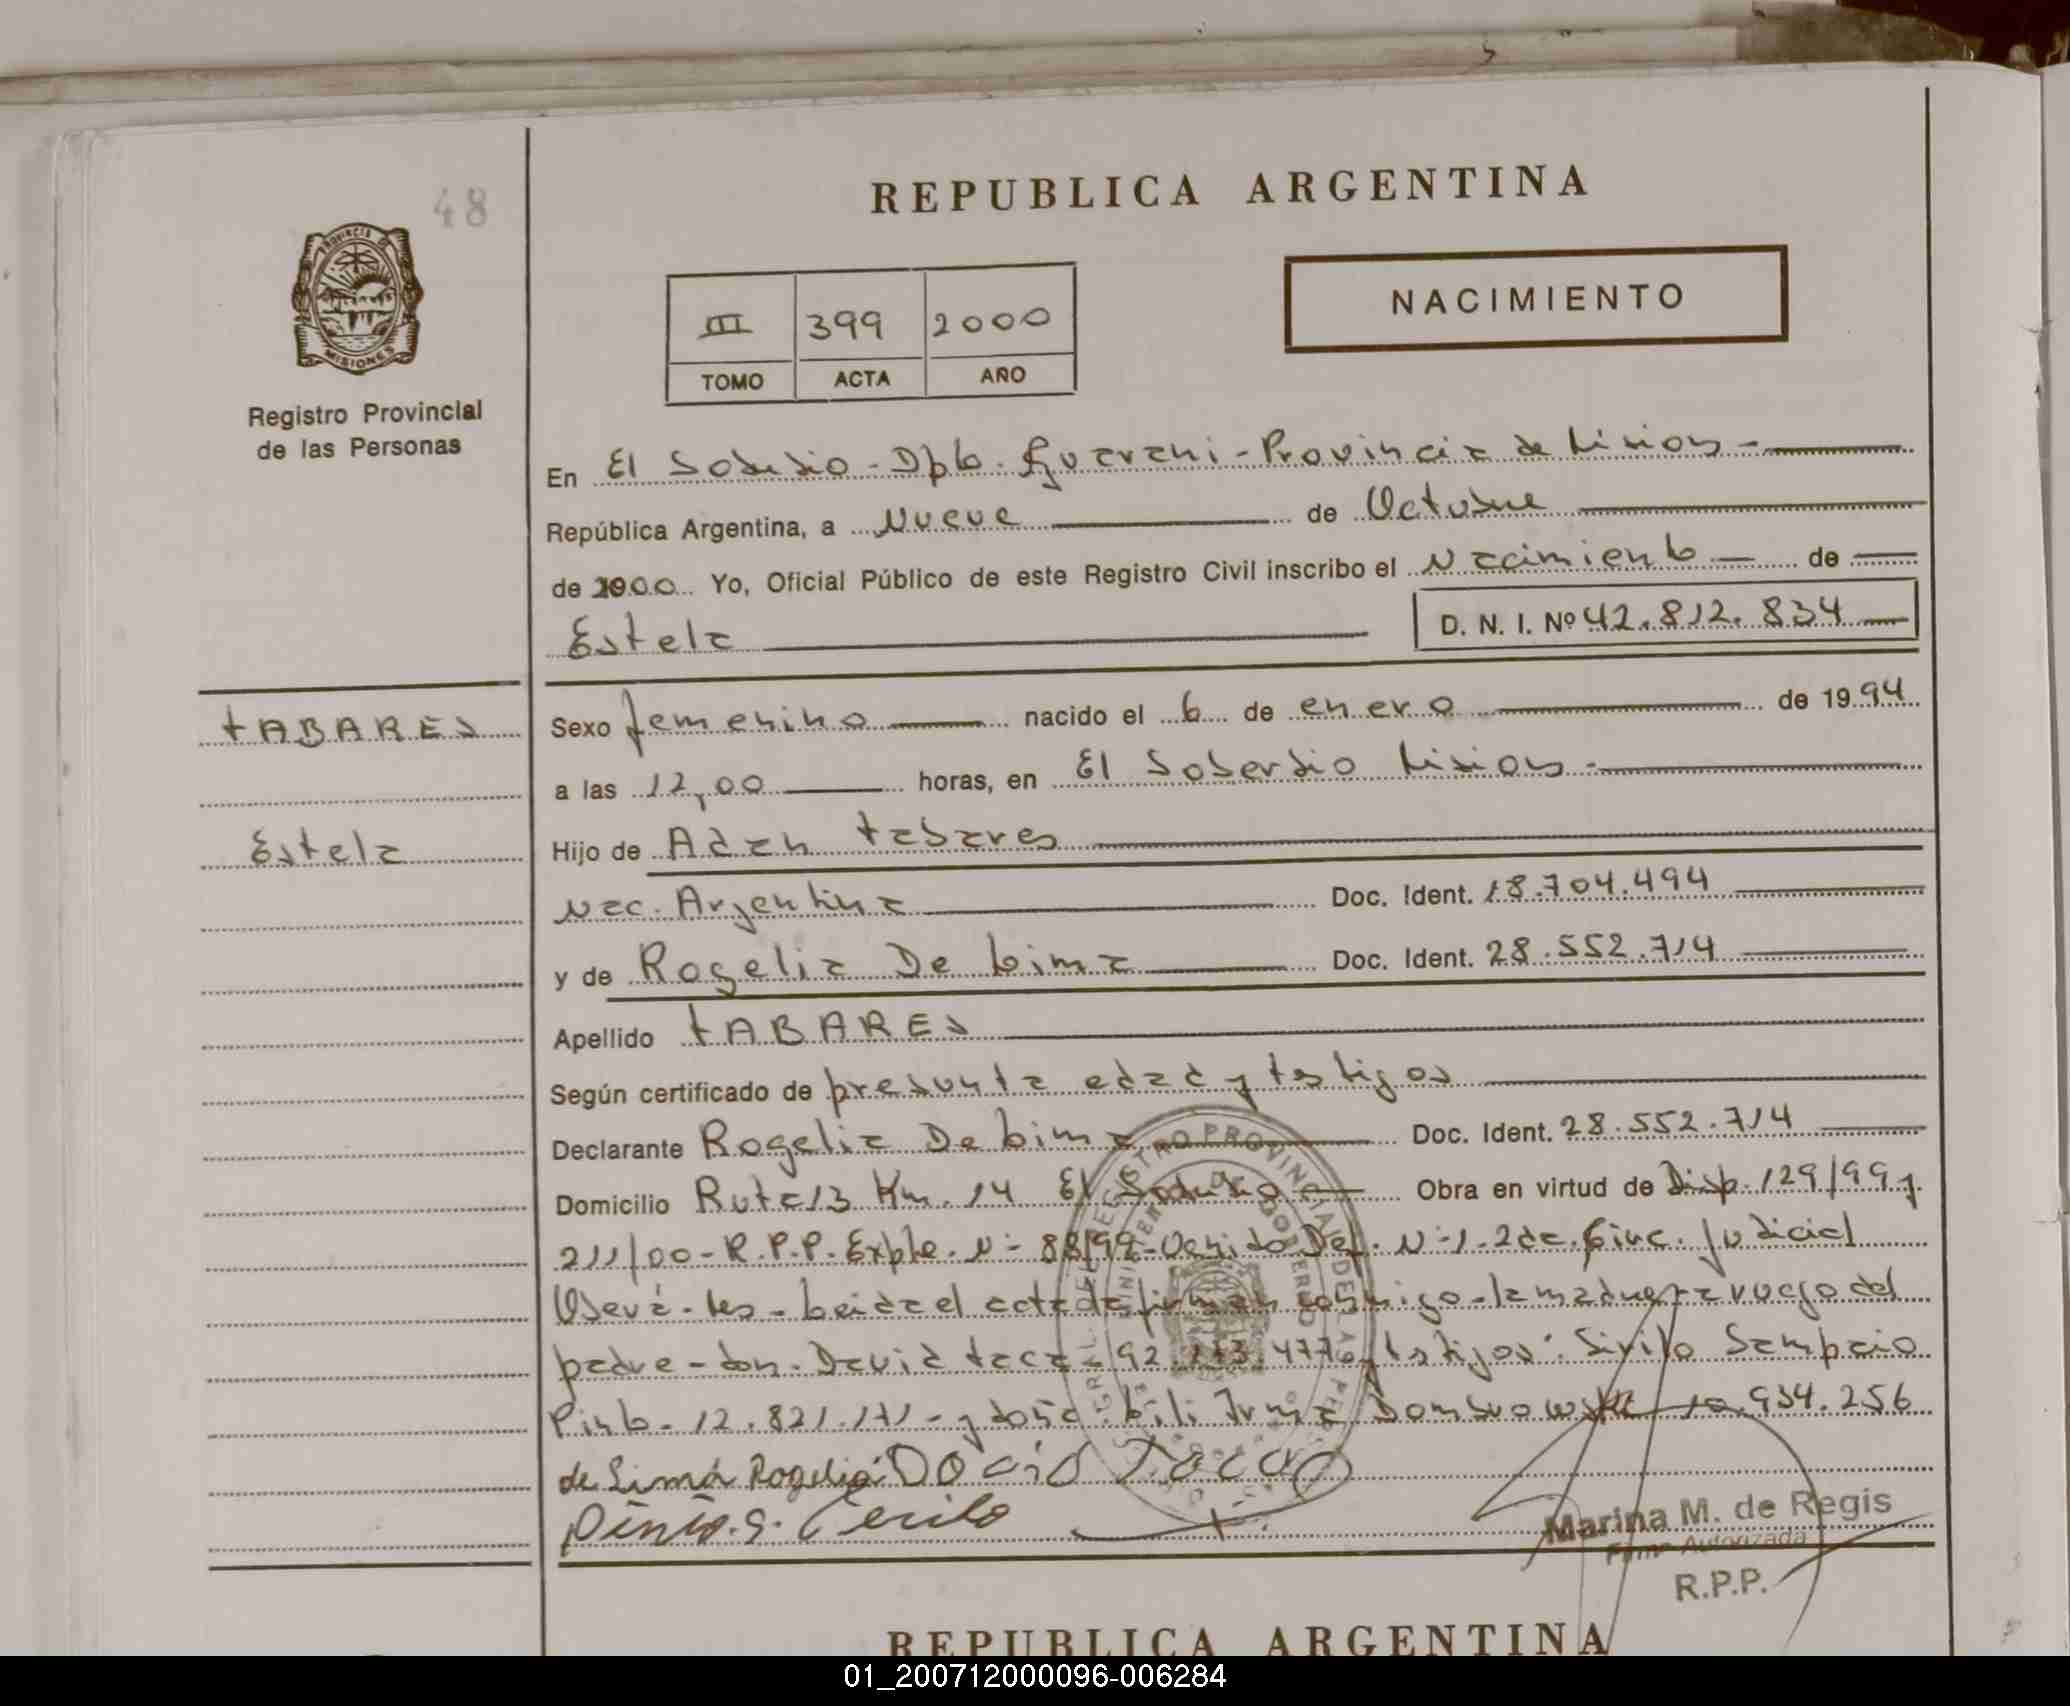 48
REPUBLICA ARGENTINA
PROVINCIA DE
MISIONES
Registro Provincial
de las Personas
III 399 2000
TOMO ACTA AÑO
NACIMIENTO
En El Soberbio - Dpto. Guarani - Provincia de Misiones -
República Argentina, a Nueve de Octubre
de 2000 Yo, Oficial Público de este Registro Civil inscribo el Nacimiento de
Estela
D. N. I. Nº 42.812.834
TABARES
Estela
Sexo femenino nacido el 6 de enero de 1994
a las 12,00 horas, en El Soberbio Misiones -
Hijo de Adan Tabares
Nac. Argentina Doc. Ident. 18.704.494
y de Rogelia De Lima Doc. Ident. 28.552.714
Apellido TABARES
Según certificado de presunta edad y testigos
Declarante Rogelia De Lima Doc. Ident. 28.552.714
Domicilio Ruta 13 Km. 14 El Soberbio Obra en virtud de Disp. 129/99 y
211/00 - R.P.P. Expte. N- 88/99 - Venido Def. N-1 - 2da. Circ. Judicial
Oberá - Leida el acta firman conmigo - la madre a ruego del
padre - don David Taca - 92. 477 y testigos: Sirilo Sampaio
Pinto - 12.821.171 - y doña Lili Irma Dombrowski 10.934.256
de Lima Rogelia
Marina M. de Regis
Firma Autorizada
R.P.P.
REPUBLICA ARGENTINA
01_200712000096-006284